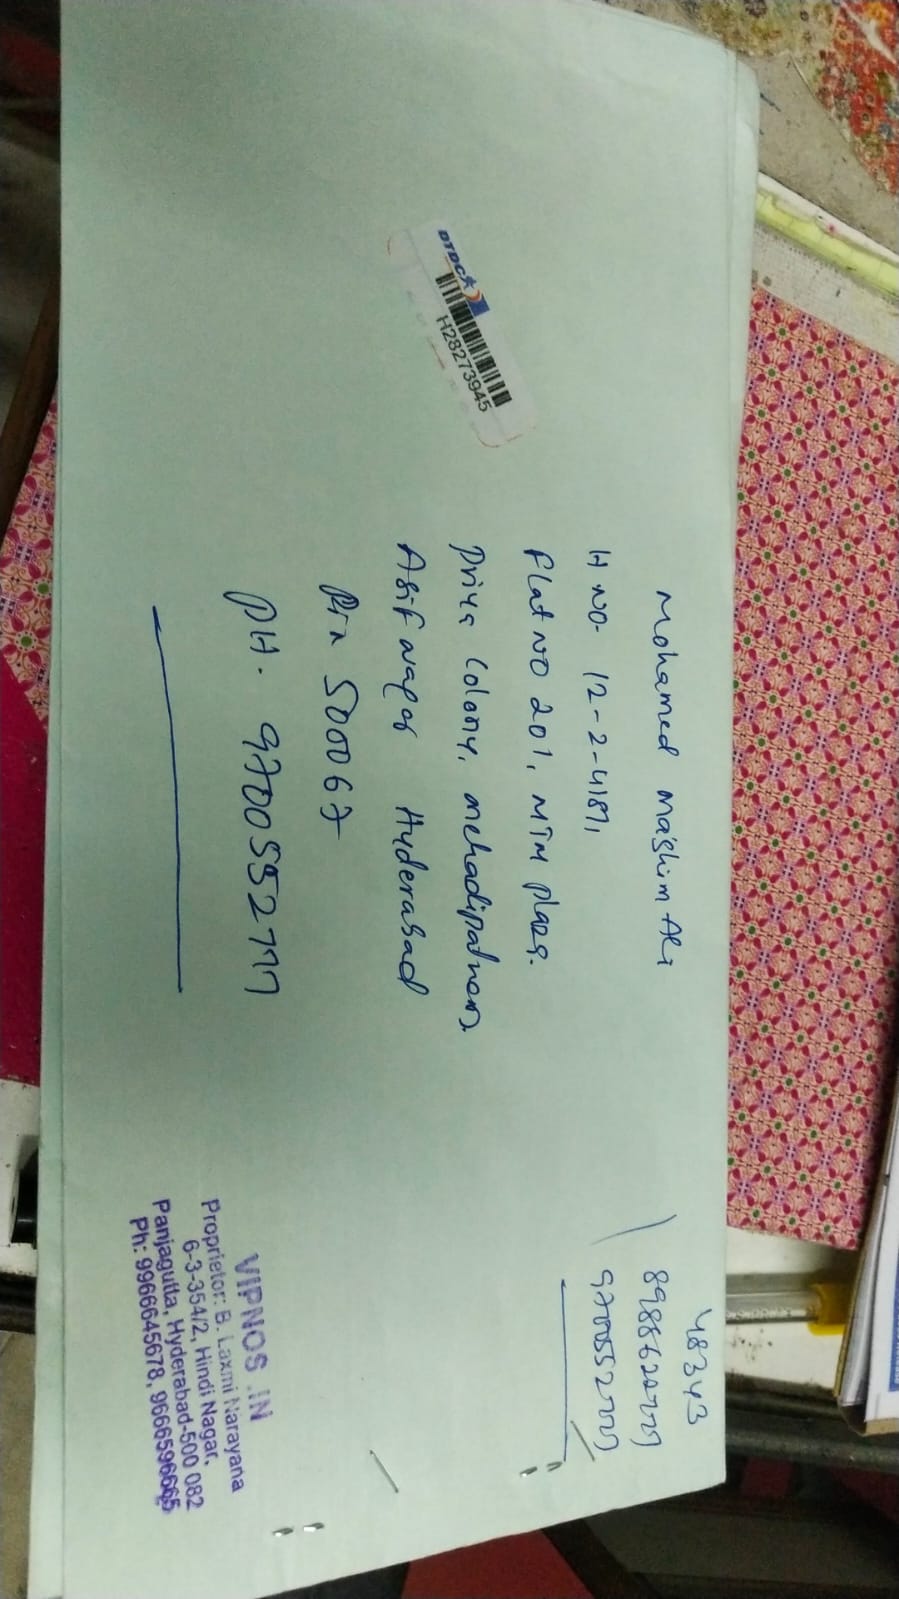 48343
8988622777
9700552777
DTDC
H28273945
Mohamed Mashim Ali
H NO. 12-2-418/1,
Flat NO 201, MTM Plaza.
Priya Colony, mehadipatnam
Asif nagar Hyderabad
Pin 500067
PH. 9700552777
VIPNOS.IN
Proprietor: B. Laxmi Narayana
6-3-354/2, Hindi Nagar,
Panjagutta, Hyderabad-500 082
Ph: 9966645678, 9666596665